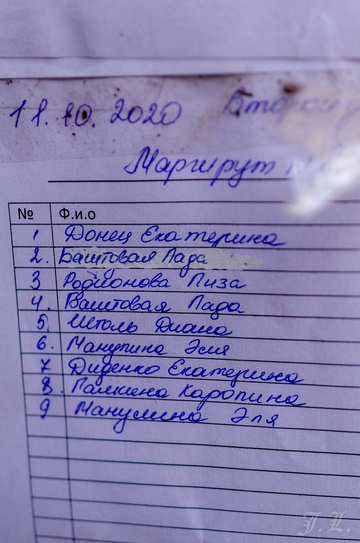 11.10.2020 Второй
Маршрут
№ Ф.и.о
1 Донец Екатерина
2. Ваштовая Лада
3 Родионова Лиза
4. Ваштовая Лада
5. Диана
6. Манулина Эля
7 Диденко Екатерина
8. Палкина Каролина
9 Манулина Эля
J.L.